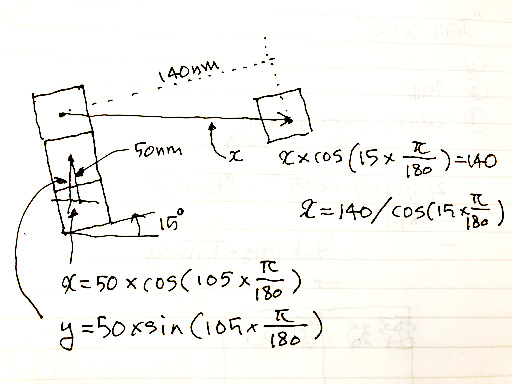 140nm
50nm
x
x×cos(15×π/180)=140
x=140/cos(15×π/180)
15°
x=50×cos(105×π/180)
y=50×sin(105×π/180)